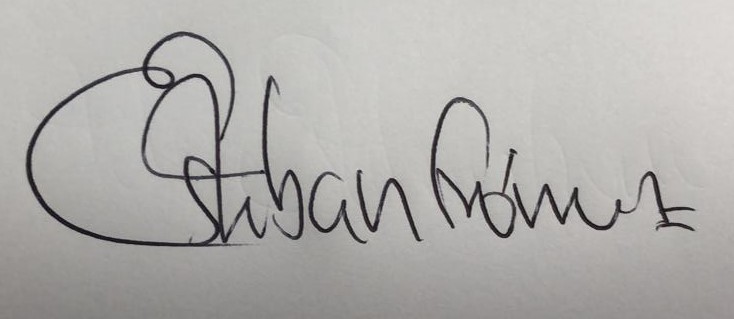 Esteban Gómez